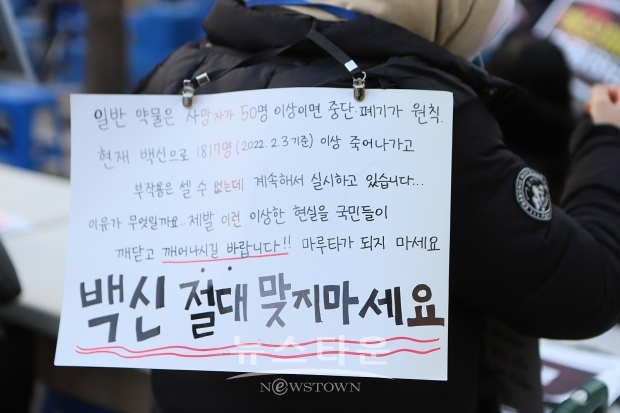 일반 약물은 사망자가 50명 이상이면 중단·폐기가 원칙.
현재 백신으로 1817명 (2022. 2.3 기준) 이상 죽어나가고
부작용은 셀 수 없는데 계속해서 실시하고 있습니다...
이유가 무엇일까요.. 제발 이런 이상한 현실을 국민들이
깨닫고 깨어나시길 바랍니다!! 마루타가 되지 마세요
백신 절대 맞지마세요
뉴스타운
NEWSTOWN